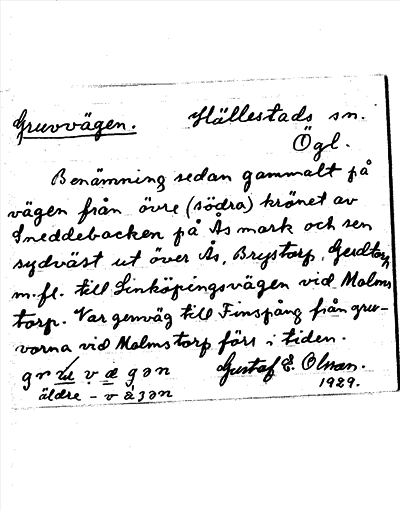 Gruvvägen. Hällestads sn.
Ögl.
Benämning sedan gammalt på
vägen från övre (södra) krönet av
Sneddebacken på Ås mark och sen
sydväst ut över Ås, Brystorp, Gerdtorp
m.fl. till Linköpingsvägen vid Malms
torp. Var genväg till Finspång från gru-
vorna vid Malmstorp förr i tiden.
Gustaf E. Olsson.
1929.
äldre -